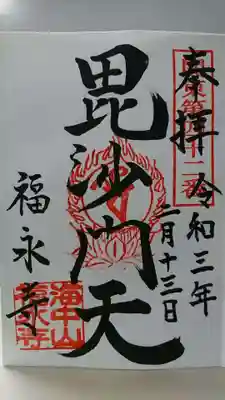 奉拝
令和三年
二月十三日
毘沙門天
福永寺
海中山
福永寺